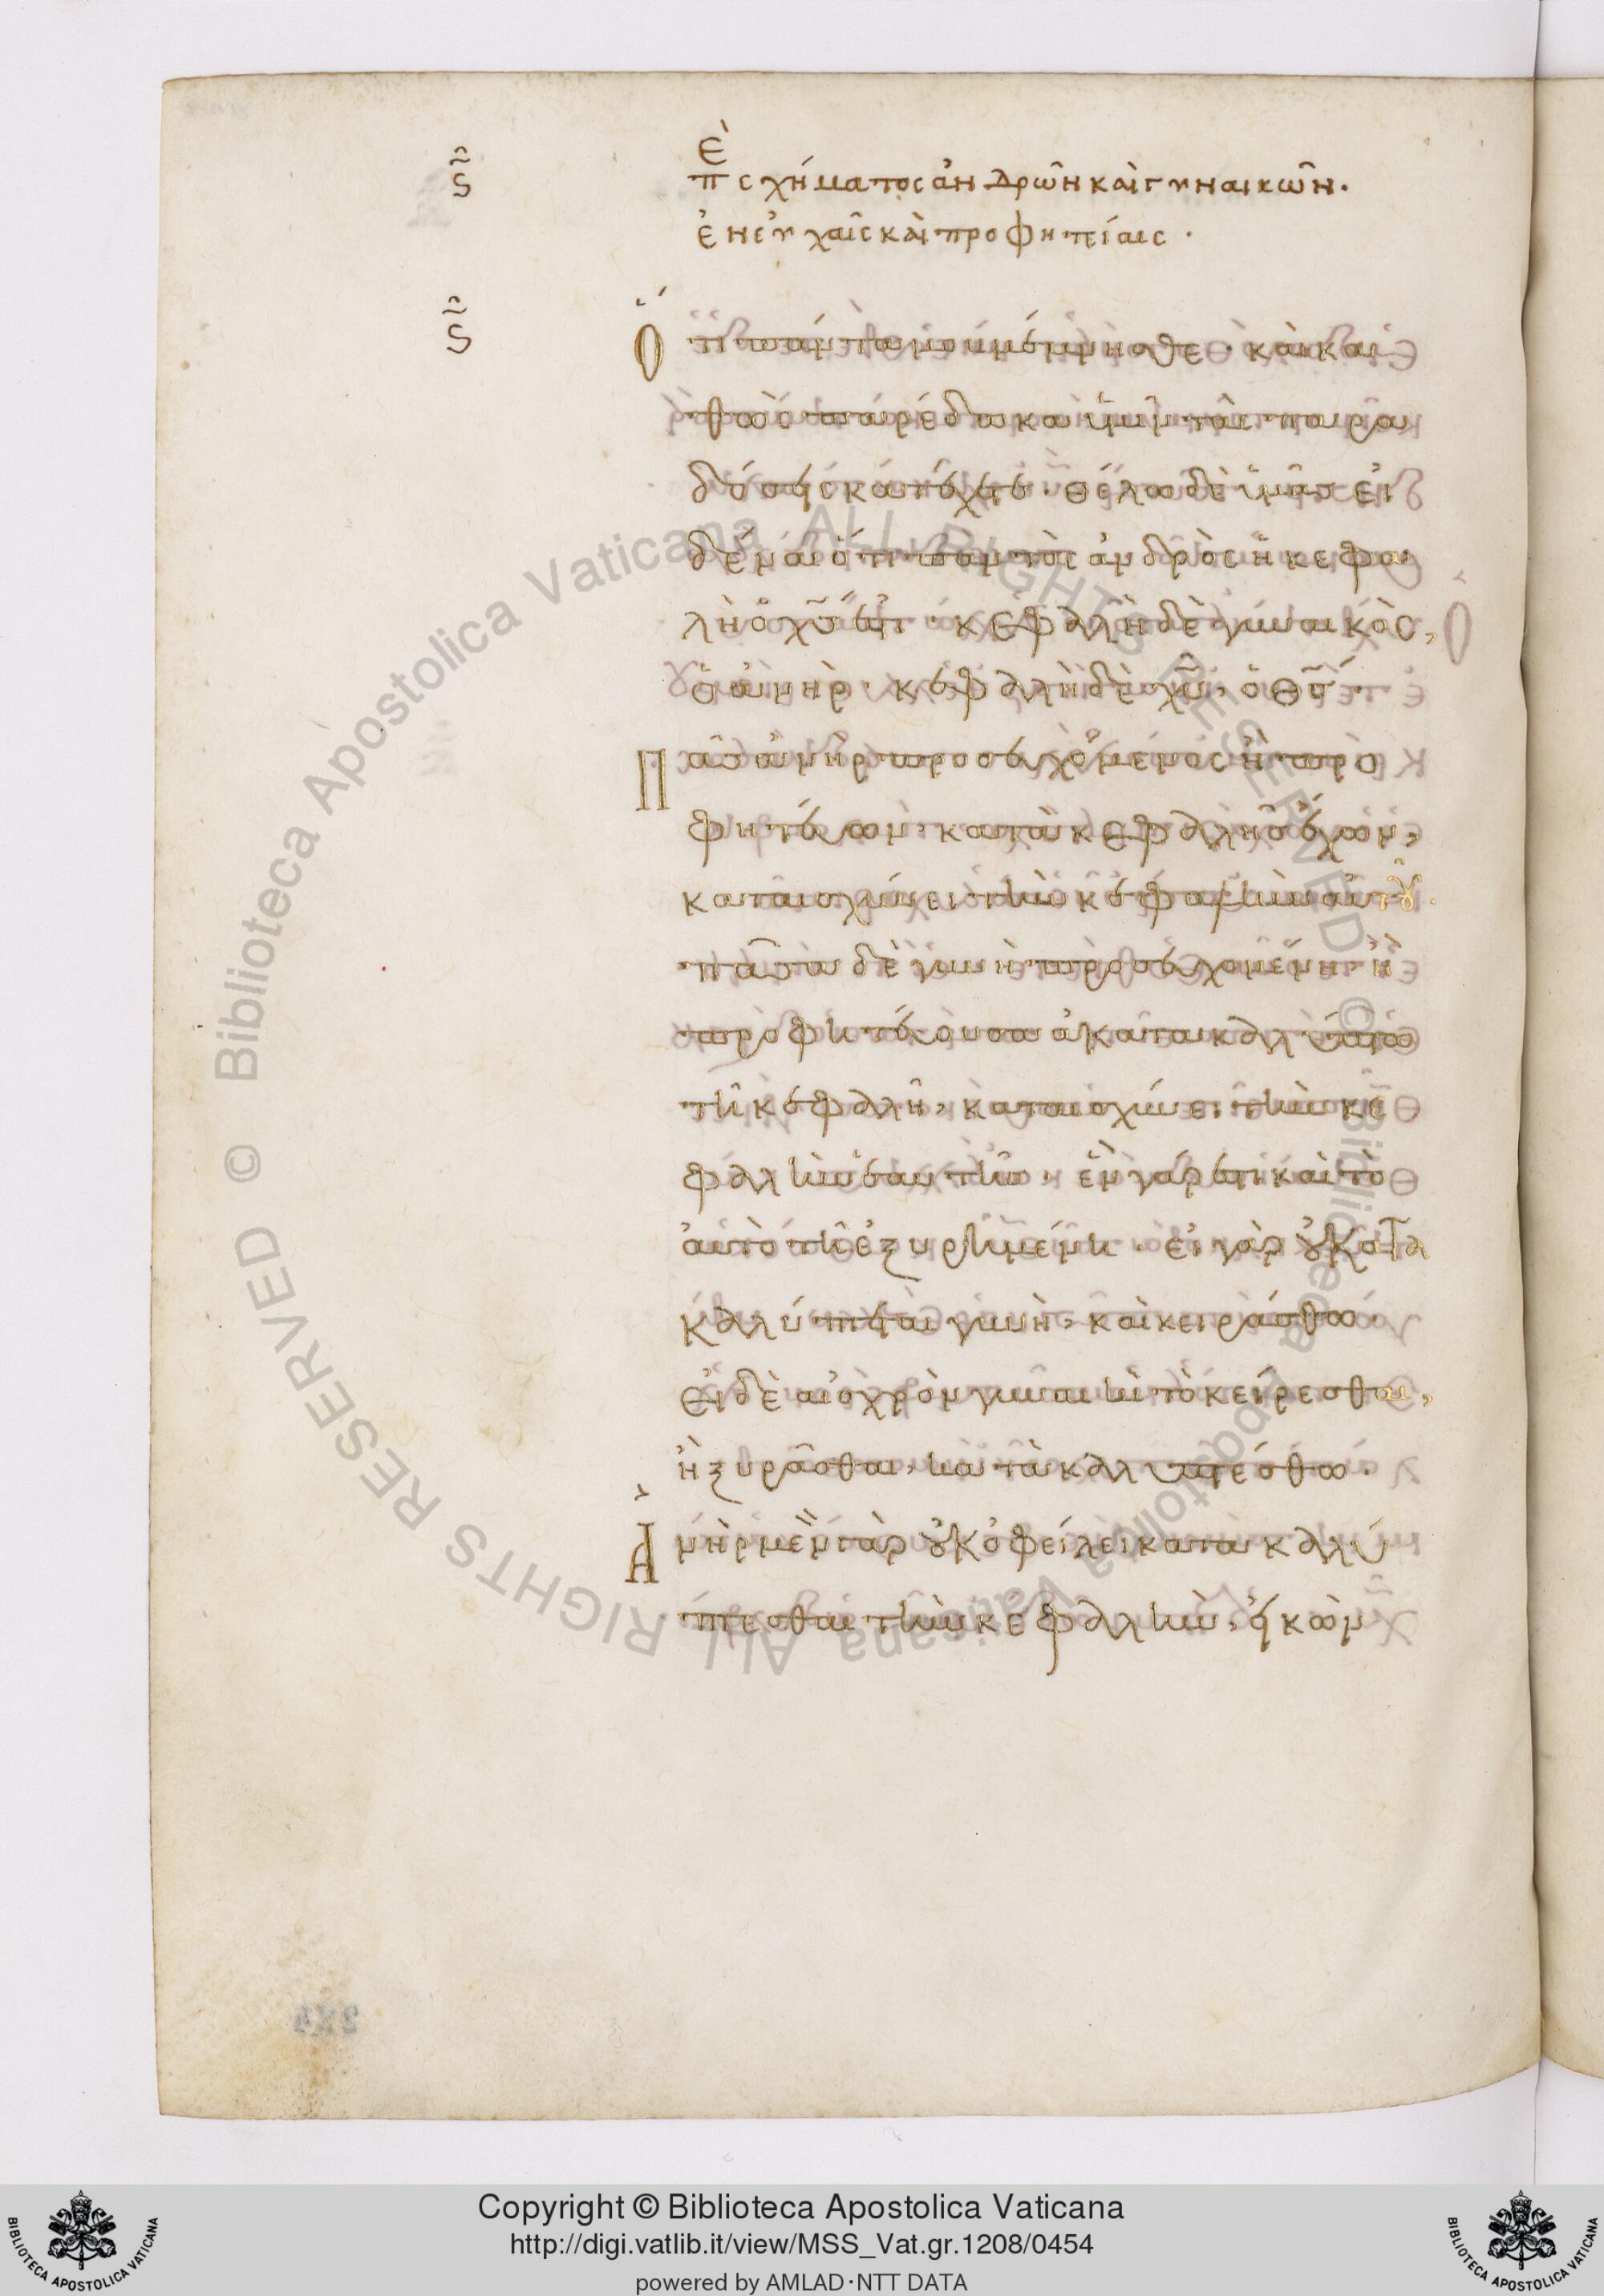 ς
πὲ σχήματος ἀνδρῶν καὶ γυναικῶν.
ἐν εὐχαῖς καὶ προφητείαις.
ς
Ὅτι πάντα μου μέμνησθε· καὶ κα
θὼς παρέδωκα ὑμῖν τὰς παρα
δόσεις κατέχετε· θέλω δὲ ὑμᾶς εἰ
δέναι ὅτι παντὸς ἀνδρὸς ἡ κεφα
λὴ ὁ χς ἐστι· κεφαλὴ δὲ γυναικὸς,
ὁ ἀνήρ· κεφαλὴ δὲ χυ, ὁ θς·
Πᾶς ἀνὴρ προσευχόμενος ἢ προ
φητεύων, κατὰ κεφαλῆς ἔχων,
καταισχύνει τὴν κεφαλὴν αὐτοῦ.
πᾶσα δὲ γυνὴ προσευχομένη ἢ
προφητεύουσα ἀκατακαλύπτω
τῆ κεφαλῆ, καταισχύνει τὴν κε
φαλὴν ἑαυτῆς· ἓν γάρ ἐστι καὶ τὸ
αὐτὸ τῆ ἐξυρημένη· εἰ γὰρ οὐ κατα
καλύπτεται γυνὴ, καὶ κειράσθω.
εἰ δὲ αἰσχρὸν γυναικὶ τὸ κείρεσθαι,
ἢ ξυρᾶσθαι, κατακαλυπτέσθω.
Ἀνὴρ μὲν γὰρ οὐκ ὀφείλει κατακαλύ
πτεσθαι τὴν κεφαλὴν, εἰκὼν
Copyright © Biblioteca Apostolica Vaticana
http://digi.vatlib.it/view/MSS_Vat.gr.1208/0454
powered by AMLAD·NTT DATA
BIBLIOTECA APOSTOLICA VATICANA
BIBLIOTECA APOSTOLICA VATICANA
© Biblioteca Apostolica Vaticana ALL RIGHTS RESERVED
© Biblioteca Apostolica Vaticana ALL RIGHTS RESERVED